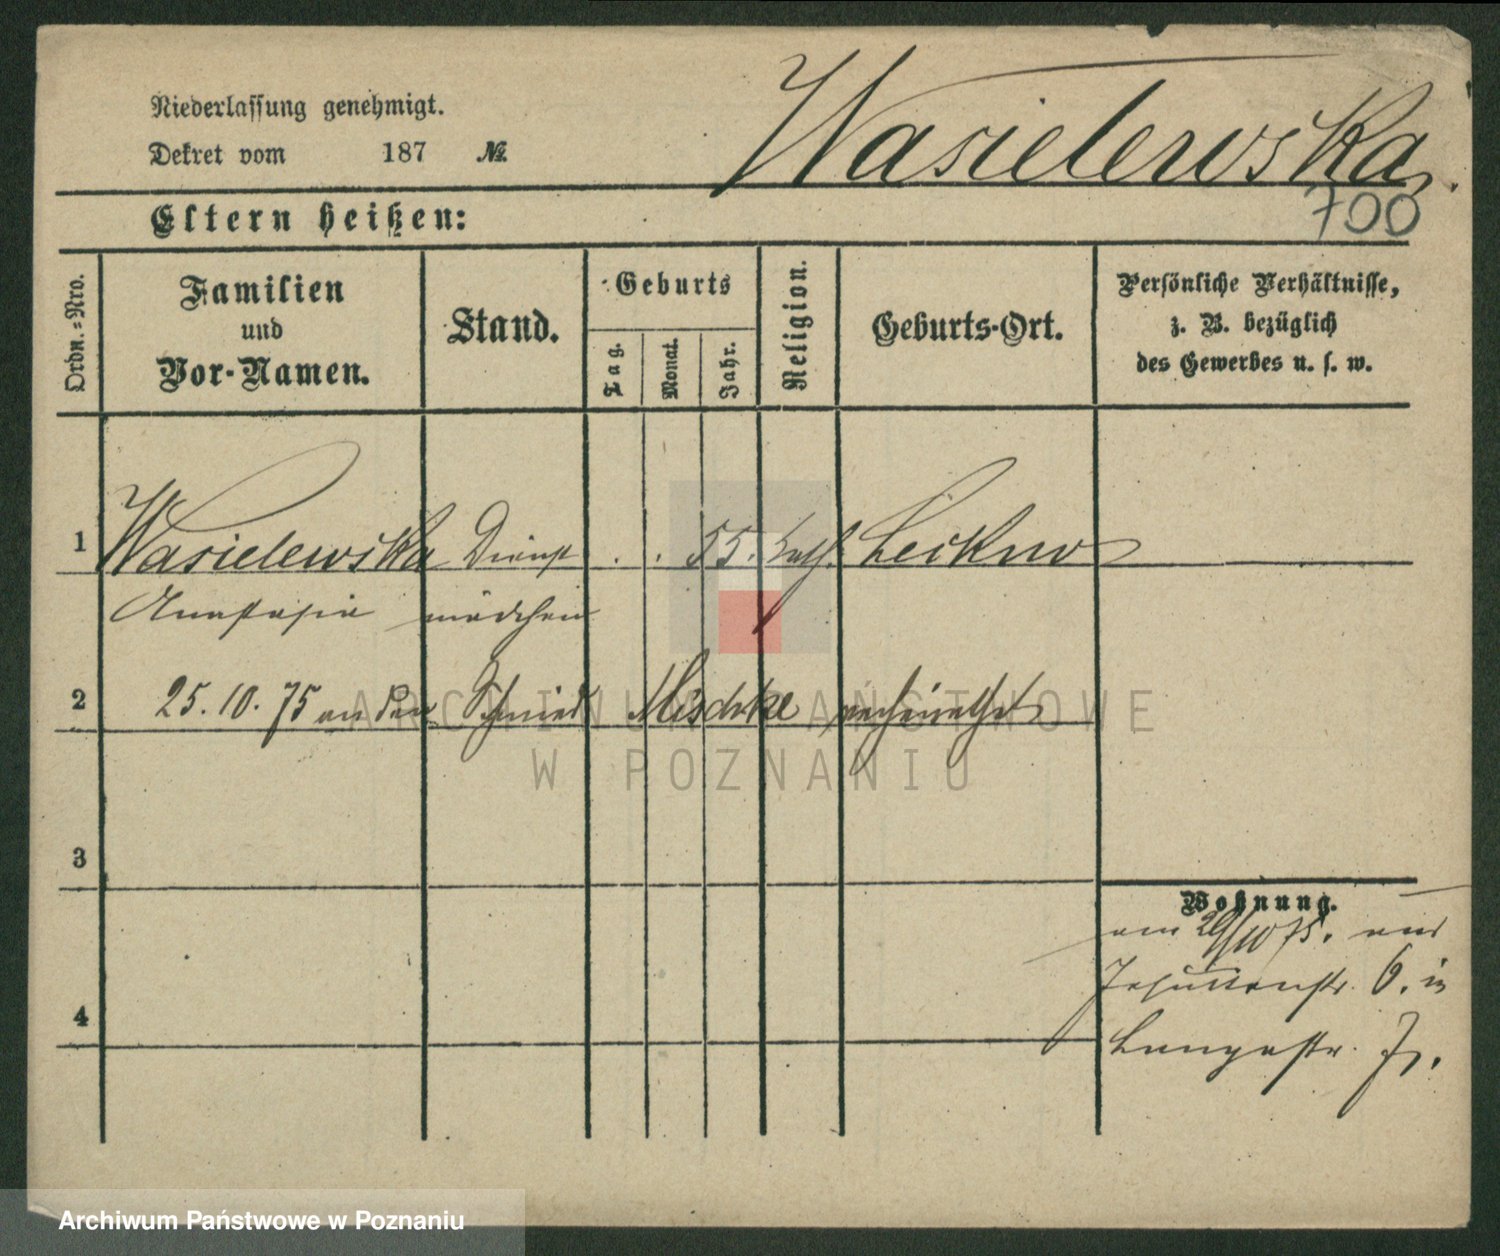 Wasielewska
Niederlassung genehmigt.
Dekret vom 187 №
700
Eltern heißen:
Ordn.=Nro.
Familien
und
Vor-Namen.
Stand.
Geburts
Tag.
Monat.
Jahr.
Religion.
Geburts-Ort.
Persönliche Verhältnisse,
z. B. bezüglich
des Gewerbes u. s. w.
1 Wasielewska Dienst . . 55. kath. Lecknо
Anastasia mädchen
2 25. 10. 75 an den Schmied Mischke verheirathet
3
Wohnung.
am 29/10 75. aus
Jesuitenstr. 6. in
4
Langestr. 7.
ARCHIWUM PAŃSTWOWE
W POZNANIU
Archiwum Państwowe w Poznaniu